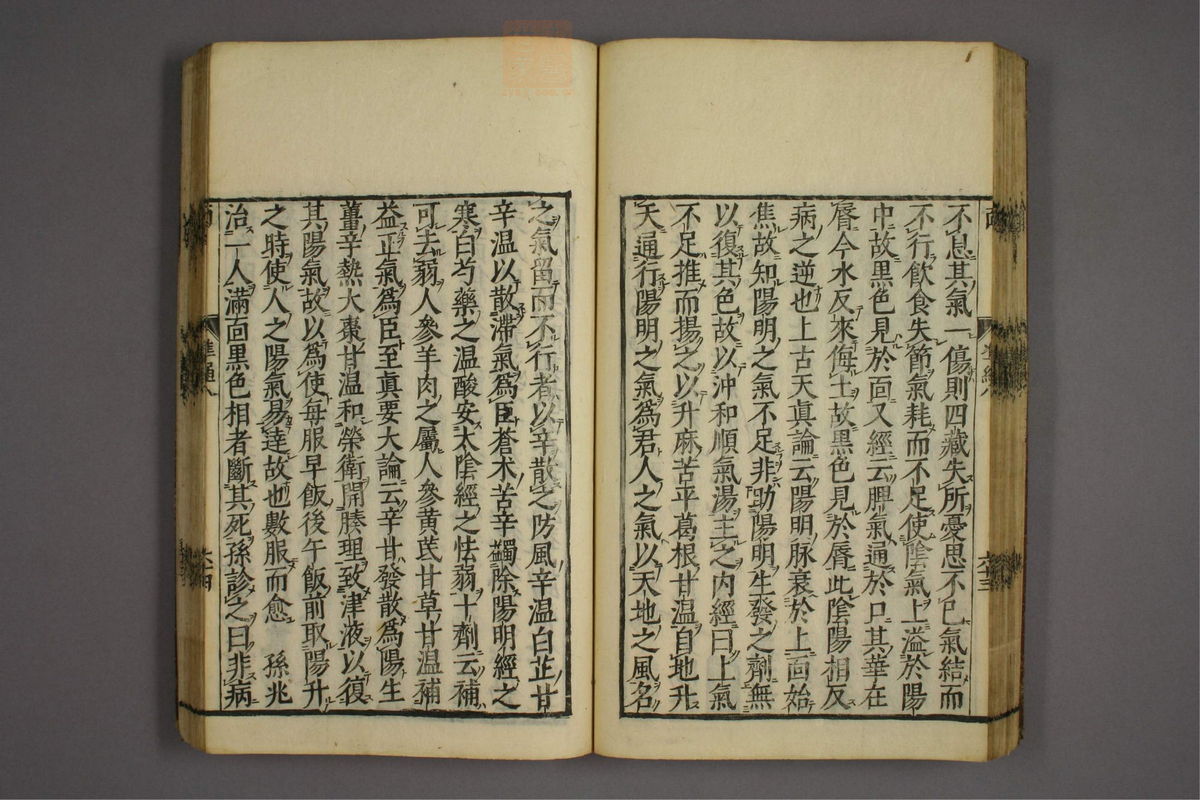 不息其氣一傷則四藏失所憂思不已氣結而
不行飲食失節氣耗而不足使陰氣上溢於陽
中故黑色見於面又經云脾氣通於口其華在
脣今水反來侮土故黑色見於脣此陰陽相反
病之逆也上古天眞論云陽明脉衰於上面始
焦故知陽明之氣不足非助陽明生發之劑無
以復其色故以沖和順氣湯主之内經曰上氣
不足推而揚之以升麻苦平葛根甘温自地升
天通行陽明之氣爲君人之氣以天地之風名
之氣留而不行者以辛散之防風辛温白芷甘
辛温以散滯氣爲臣蒼朮苦辛蠲除陽明經之
寒白芍藥之温酸安太陰經之怯弱十劑云補
可去弱人參羊肉之屬人參黄芪甘草甘温補
益正氣爲臣至眞要大論云辛甘發散爲陽生
薑辛熱大棗甘温和榮衛開腠理致津液以復
其陽氣故以爲使每服早飯後午飯前取陽升
之時使人之陽氣易達故也數服而愈 孫兆
治一人滿面黒色相者斷其死孫診之曰非病